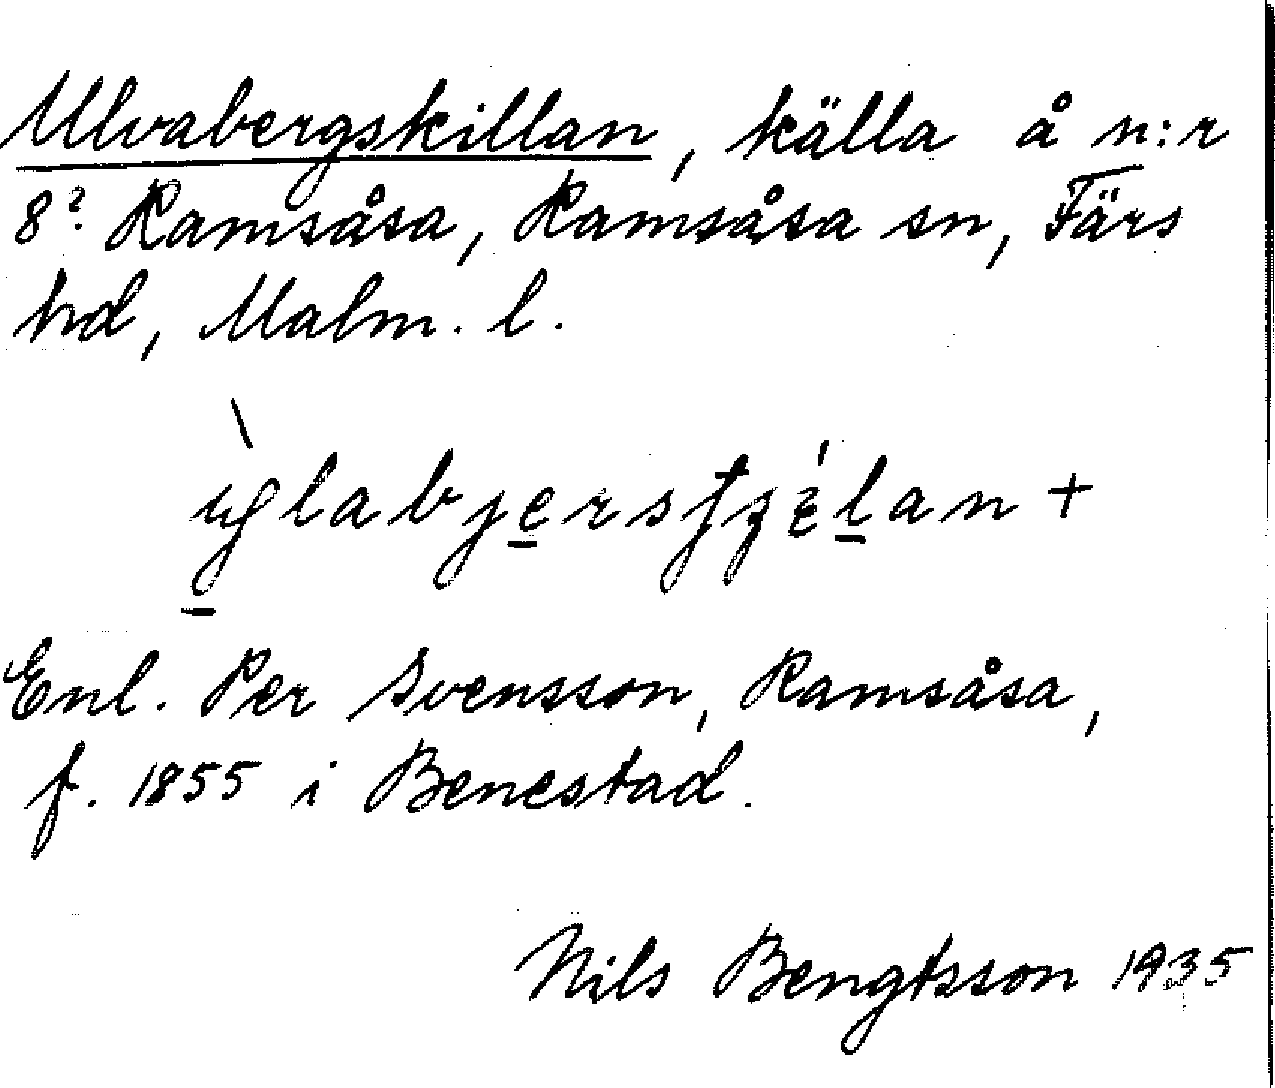 Ulvabergskillan, källa å n:r
8? Ramsåsa, Ramsåsa sn, Färs
hd, Malm. l.
Enl. Per Svensson, Ramsåsa,
f. 1855 i Benestad.
Nils Bengtsson 1935